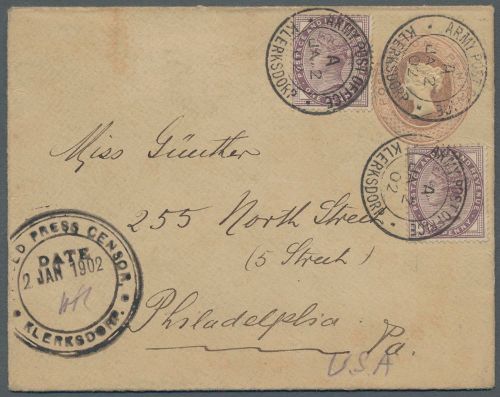 ARMY POST OFFICE
A
JA 2
KLERKSDORP
ARMY POST
A
JA 2
02
KLERKSDORP
ARMY POST OFFICE
A
JA 2
02
KLERKSDORP
POSTAGE AND INLAND REVENUE
Miss Günther
255 North Street
(5 Street)
Philadelphia
Pa.
USA
LD PRESS CENSOR.
DATE
2 JAN 1902
KLERKSDORP.